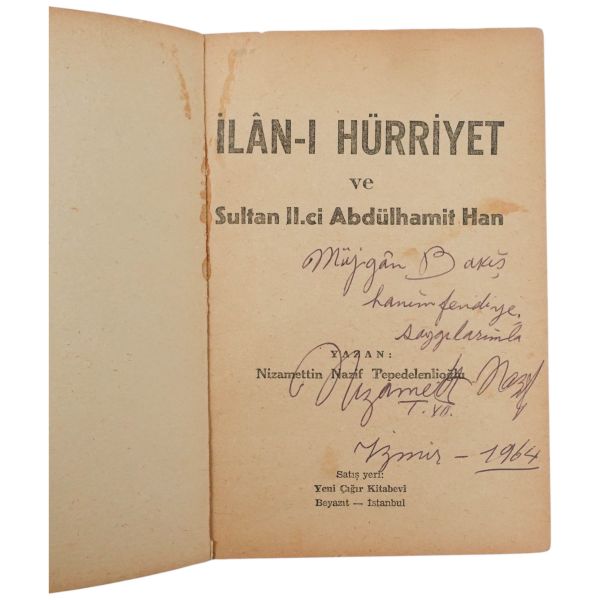 İLÂN-I HÜRRİYET
ve
Sultan II.ci Abdülhamit Han
Müjgân Bakış
hanımfendiye,
saygılarımla
YAZAN:
Nizamettin Nazif Tepedelenlioğlu
Nizamett Nazif
1.VII.
İzmir — 1964
Satış yeri:
Yeni Çığır Kitabevi
Beyazıt — İstanbul